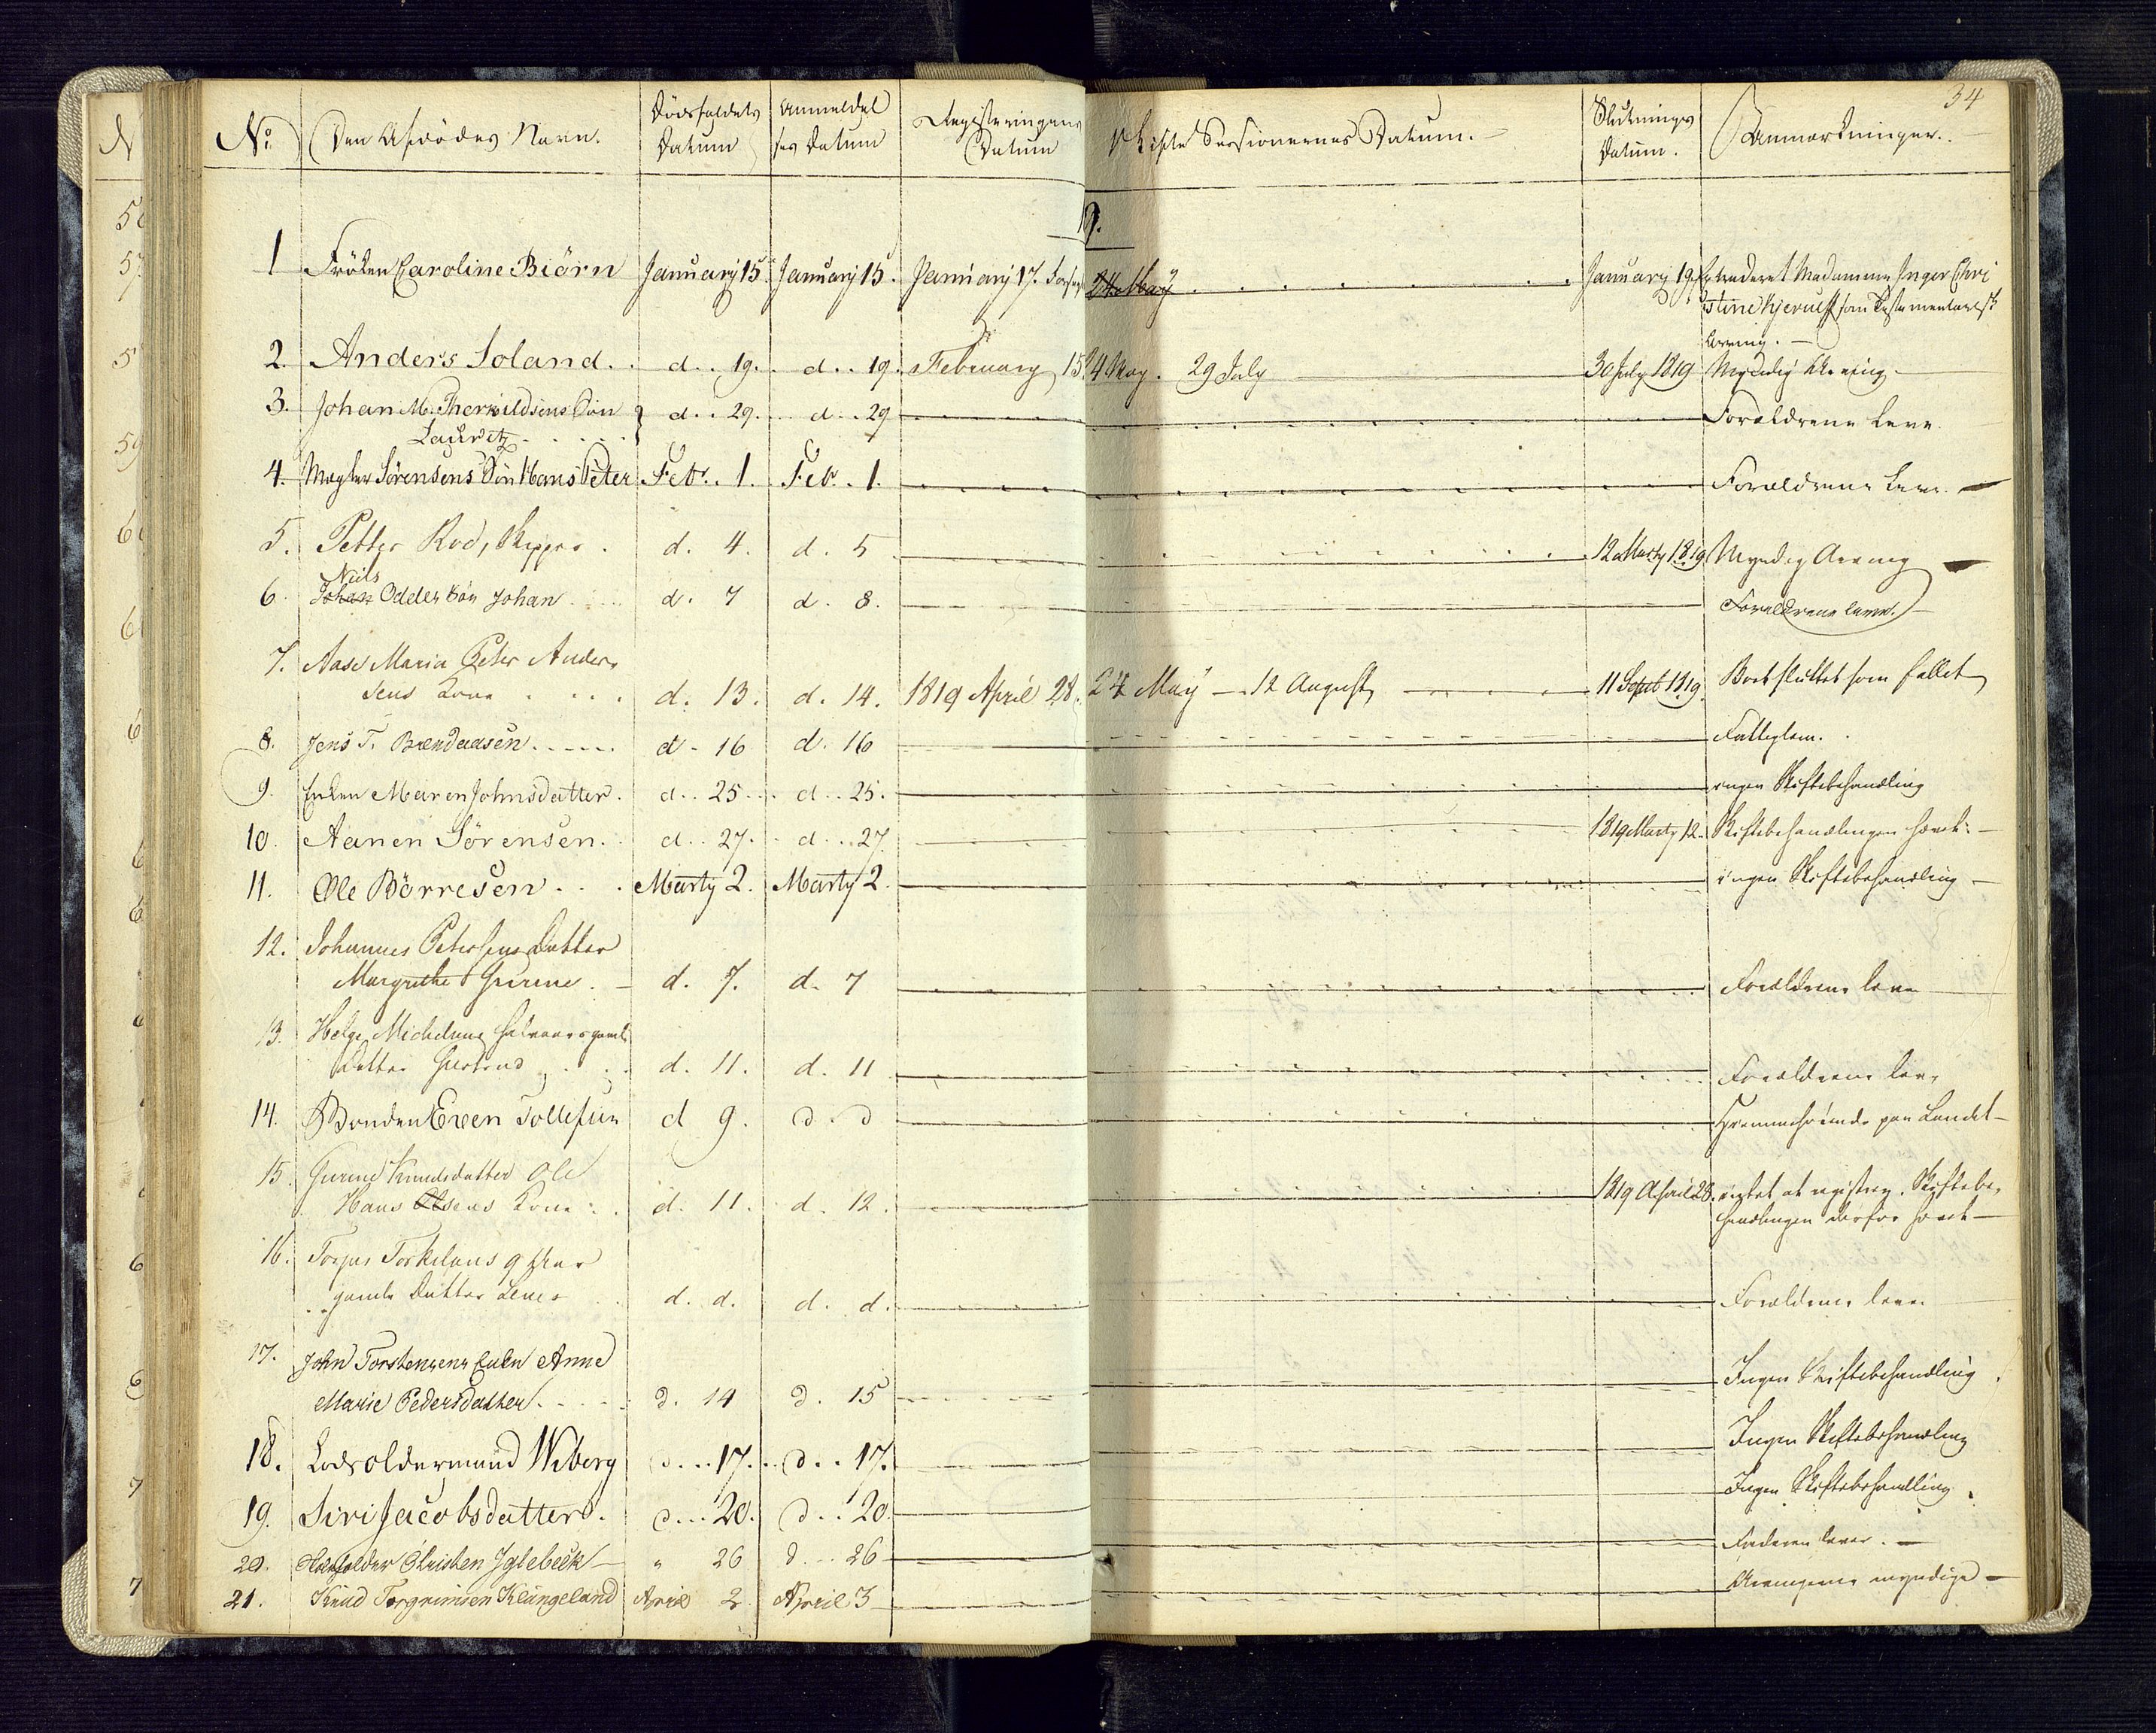 34
No Den Afdödes Navn. Dödsfaldets Datum Anmeldel ses Datum Registeringens Datum Skifte Sessionernes Datum. Slutnings Datum. Anmærkninger.
19.
1 Fröken Caroline Biörn January 15 January 15. January 17. January 19 Extraderet Madamme Inger Chri
stine Hjerulff som Testamentarisk
Arving.
2. Anders Soland. d. 19. d. 19. February 15 24 May. 29 July 30 July 1819 Myndig Arving.
3. Johan M. Therkildsens Sön d. 29. d. 29 Forældrene leve.
Lauritz
4. Mægler Sörensens Sön Hans Peter Febr. 1. Feb. 1. Forældrene leve.
5. Petter Rod, Skipper. d. 4. d. 5 12 Marty 1819 Myndig Arving
Niels
6. Johan Oddes Sön Johan d. 7 d. 8. Forældrene leve.
7. Aase Maria Peter Ander
sens Kone d. 13. d. 14. 1819 April 28. 24 May - 12 August 11 Sept 1819 Boet sluttet som fallit
8. Jens T. Brendaasen d. 16 d. 16 Fattiglem.
9. Enken Maren Johnsdatter. d. 25 d. 25. ingen Skiftebehandling
10. Aanen Sörensen. d. 27. d. 27. 1819 Marty 12. Skiftebehandlingen hævet.
11. Ole Börresen Marty 2. Marty 2. ingen Skiftebehandling
12. Johannes Petersens Datter
Margrethe d. 7. d. 7 Forældrene leve
13. Helge Michelsens halvaars gamle
Datter Giertrud d. 11. d. 11 Forældrene leve
14. Bonden Even Tollefsen d 9. d. d Hjemmehörende paa Landet
15. Gurine Knudsdatter Ole
Hans Olsens Kone d. 11. d. 12. 1819 April 28. intet at registrere. Skiftebe
handlingen derfor hævet
16. Torjus Torkelsens 9 Aar
gamle Datter Lene d. d. d. d. Forældrene leve
17. John Torstensens Enke Anne
Marie Pedersdatter. d. 14 d. 15 Ingen Skiftebehandling
18. Lodsoldermand Wiberg d. 17. d. 17. Ingen Skiftebehandling
19. Siri Jacobsdatter. d. 20. d. 20. Ingen Skiftebehandling.
20. Christen Iglebeck " 26 d. 26 Faderen lever.
21. Knud Torgrimsen Klungeland April 2 April 3 Arvingerne myndige